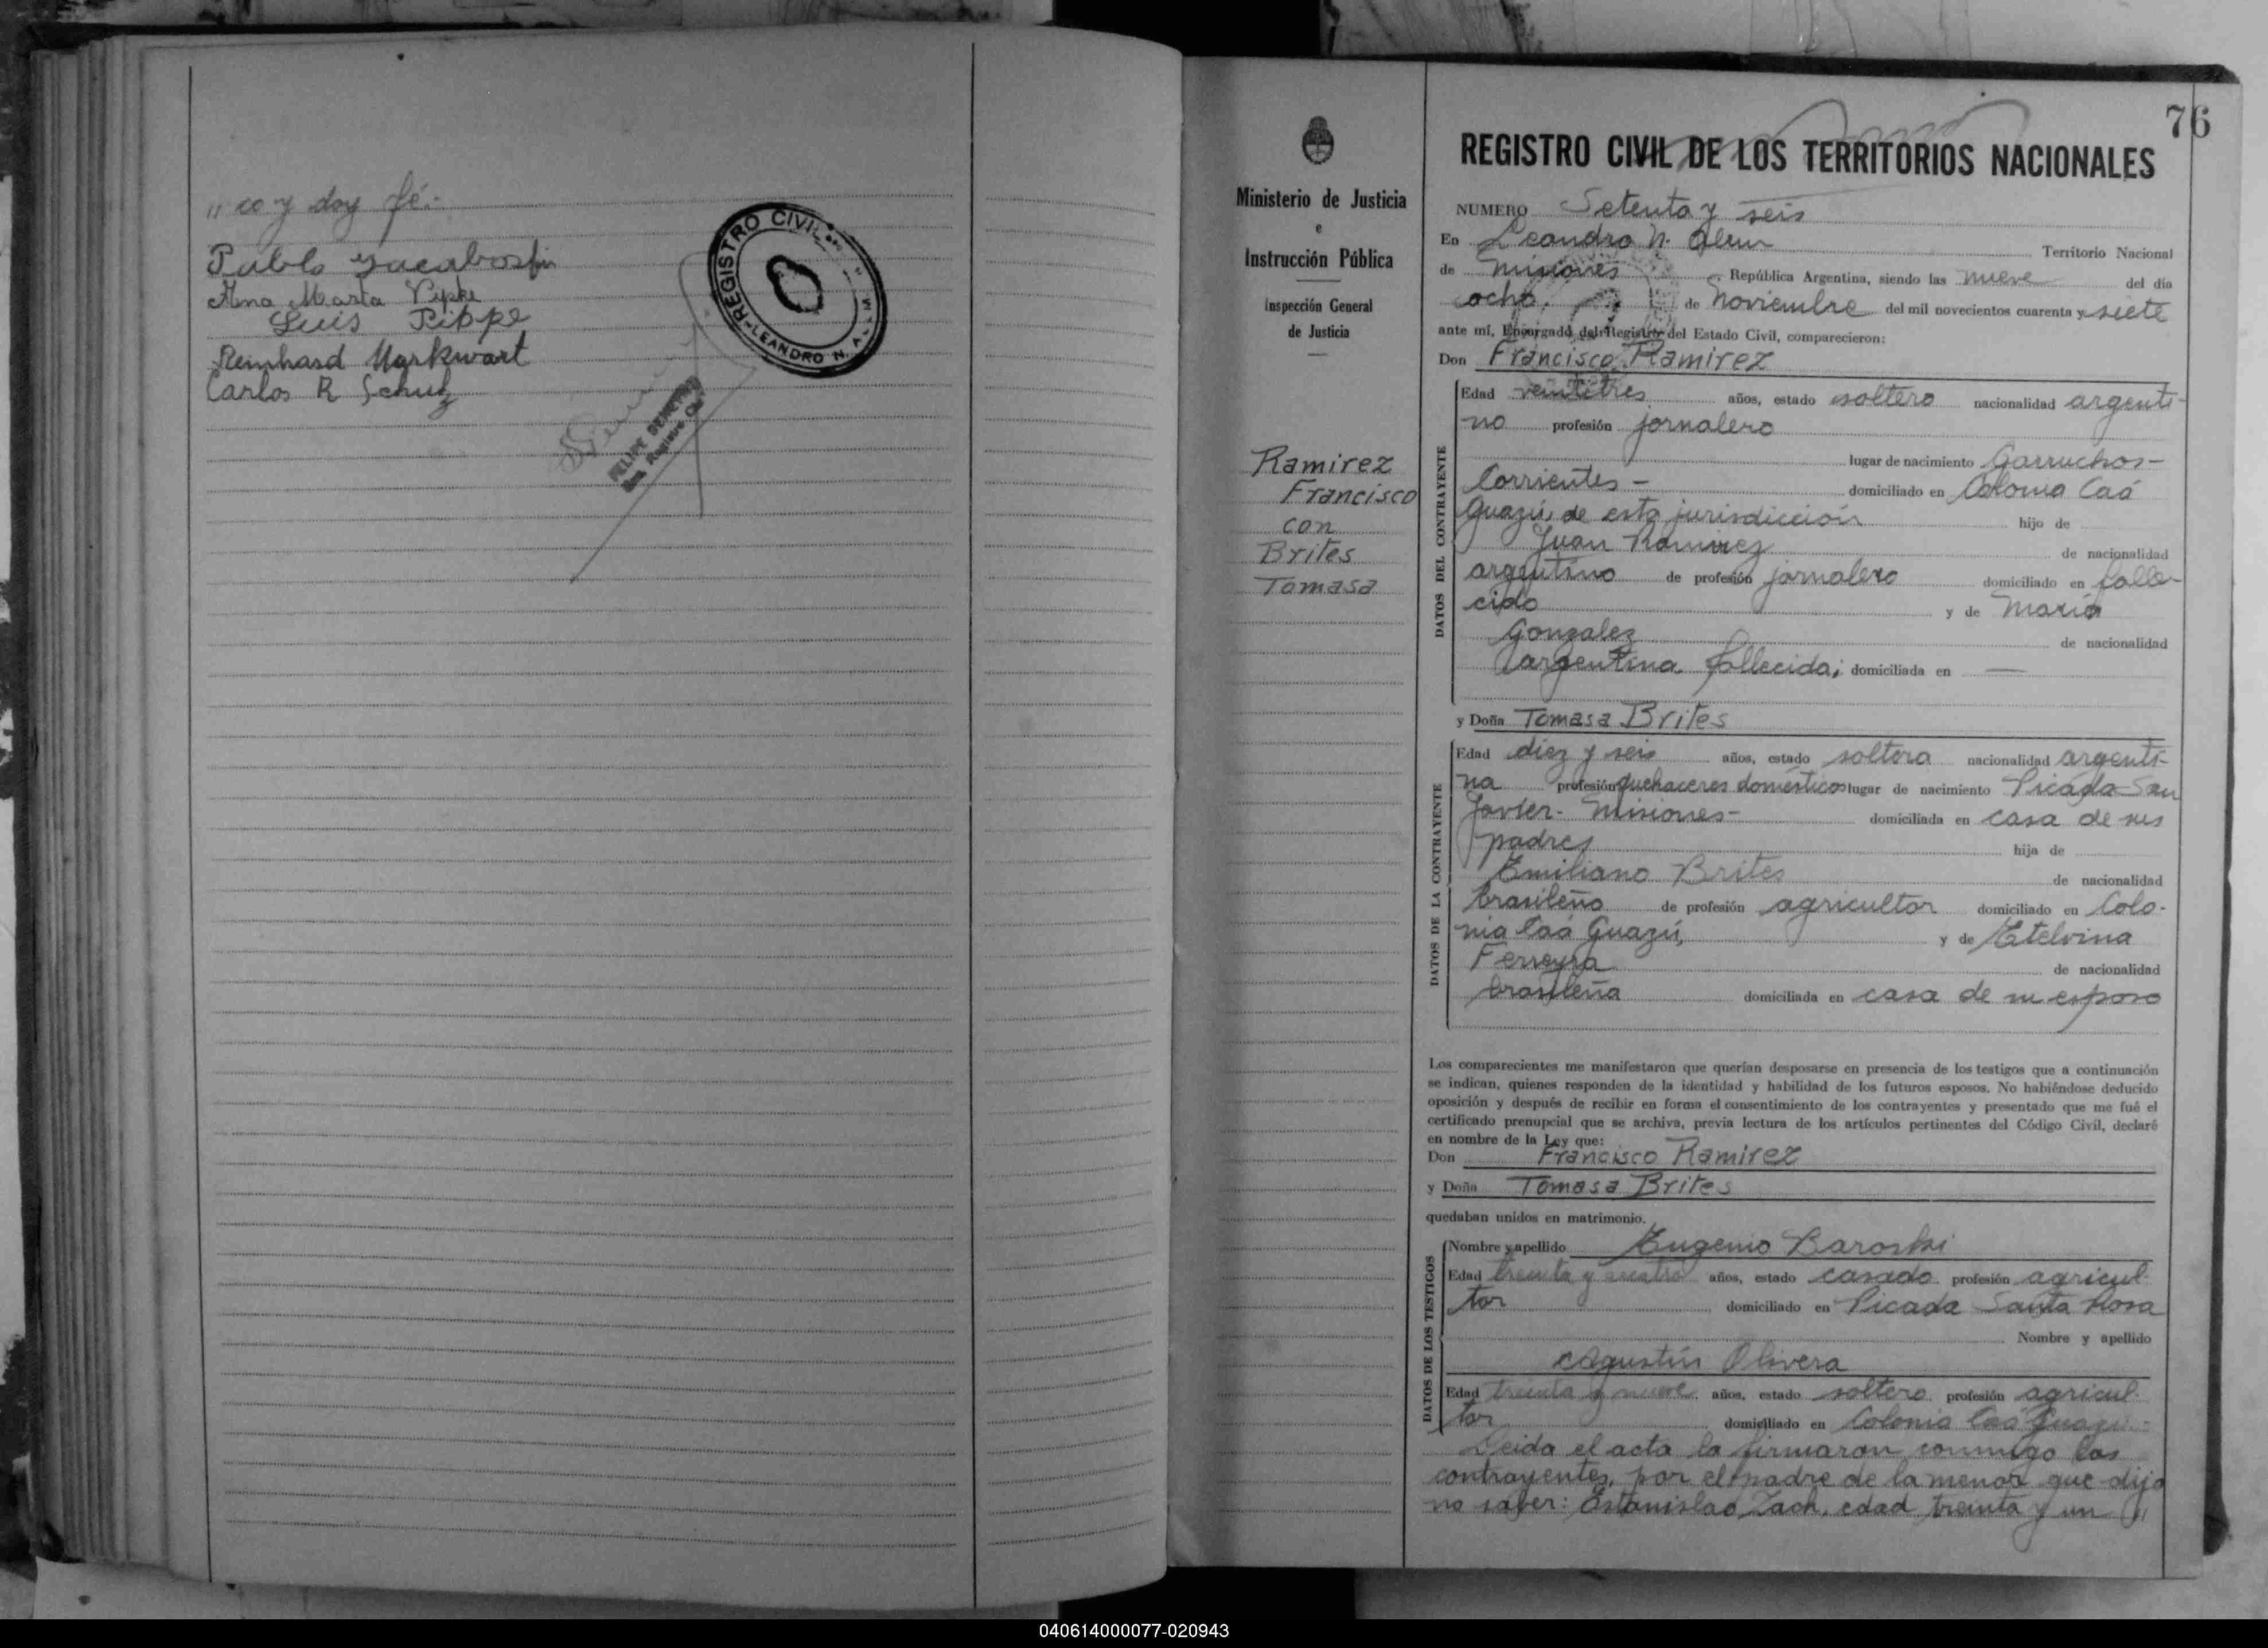 " co y doy fé.-
Pablo
Ana Marta Pipke
Luis Pippe
Reinhard Markwart
Carlos R Schulz
REGISTRO CIVIL
LEANDRO N. ALEM
76
Ministerio de Justicia
e
Instrucción Pública
Inspección General
de Justicia
Ramirez
Francisco
con
Brites
Tomasa
REGISTRO CIVIL DE LOS TERRITORIOS NACIONALES
NUMERO Setenta y seis
En Leandro N. Alem Territorio Nacional
de Misiones República Argentina, siendo las nueve del día
ocho, de Noviembre del mil novecientos cuarenta y siete
ante mí, Encargado del Registro del Estado Civil, comparecieron:
Don Francisco Ramirez
DATOS DEL CONTRAYENTE
Edad veintitres años, estado soltero nacionalidad argenti-
no profesión jornalero
lugar de nacimiento Garruchos-
Corrientes - domiciliado en Colonia Caá
Guazú, de esta jurisdicción hijo de
Juan Ramirez de nacionalidad
argentino de profesión jornalero domiciliado en falle-
cido y de María
Gonzalez de nacionalidad
argentina, fallecida; domiciliada en —
y Doña Tomasa Brites
DATOS DE LA CONTRAYENTE
Edad diez y seis años, estado soltera nacionalidad argenti-
na profesión quehaceres domésticos lugar de nacimiento Picada San
Javier- Misiones- domiciliada en casa de sus
padres hija de
Emiliano Brites de nacionalidad
brasileño de profesión agricultor domiciliado en Colo-
nia Caá Guazú, y de Etelvina
Ferreyra de nacionalidad
brasileña domiciliada en casa de su esposo
Los comparecientes me manifestaron que querían desposarse en presencia de los testigos que a continuación
se indican, quienes responden de la identidad y habilidad de los futuros esposos. No habiéndose deducido
oposición y después de recibir en forma el consentimiento de los contrayentes y presentado que me fué el
certificado prenupcial que se archiva, previa lectura de los artículos pertinentes del Código Civil, declaré
en nombre de la Ley que:
Don Francisco Ramirez
y Doña Tomasa Brites
quedaban unidos en matrimonio.
DATOS DE LOS TESTIGOS
Nombre y apellido Eugenio Baroski
Edad treinta y cuatro años, estado casado profesión agricul-
tor domiciliado en Picada Santa Rosa
Nombre y apellido
Agustín Olivera
Edad treinta y nueve años, estado soltero profesión agricul-
tor domiciliado en Colonia Caá Guazú.-
Leida el acta la firmaron conmigo los
contrayentes, por el padre de la menor que dijo
no saber: Estanislao Zach, edad treinta y un "
040614000077-020943